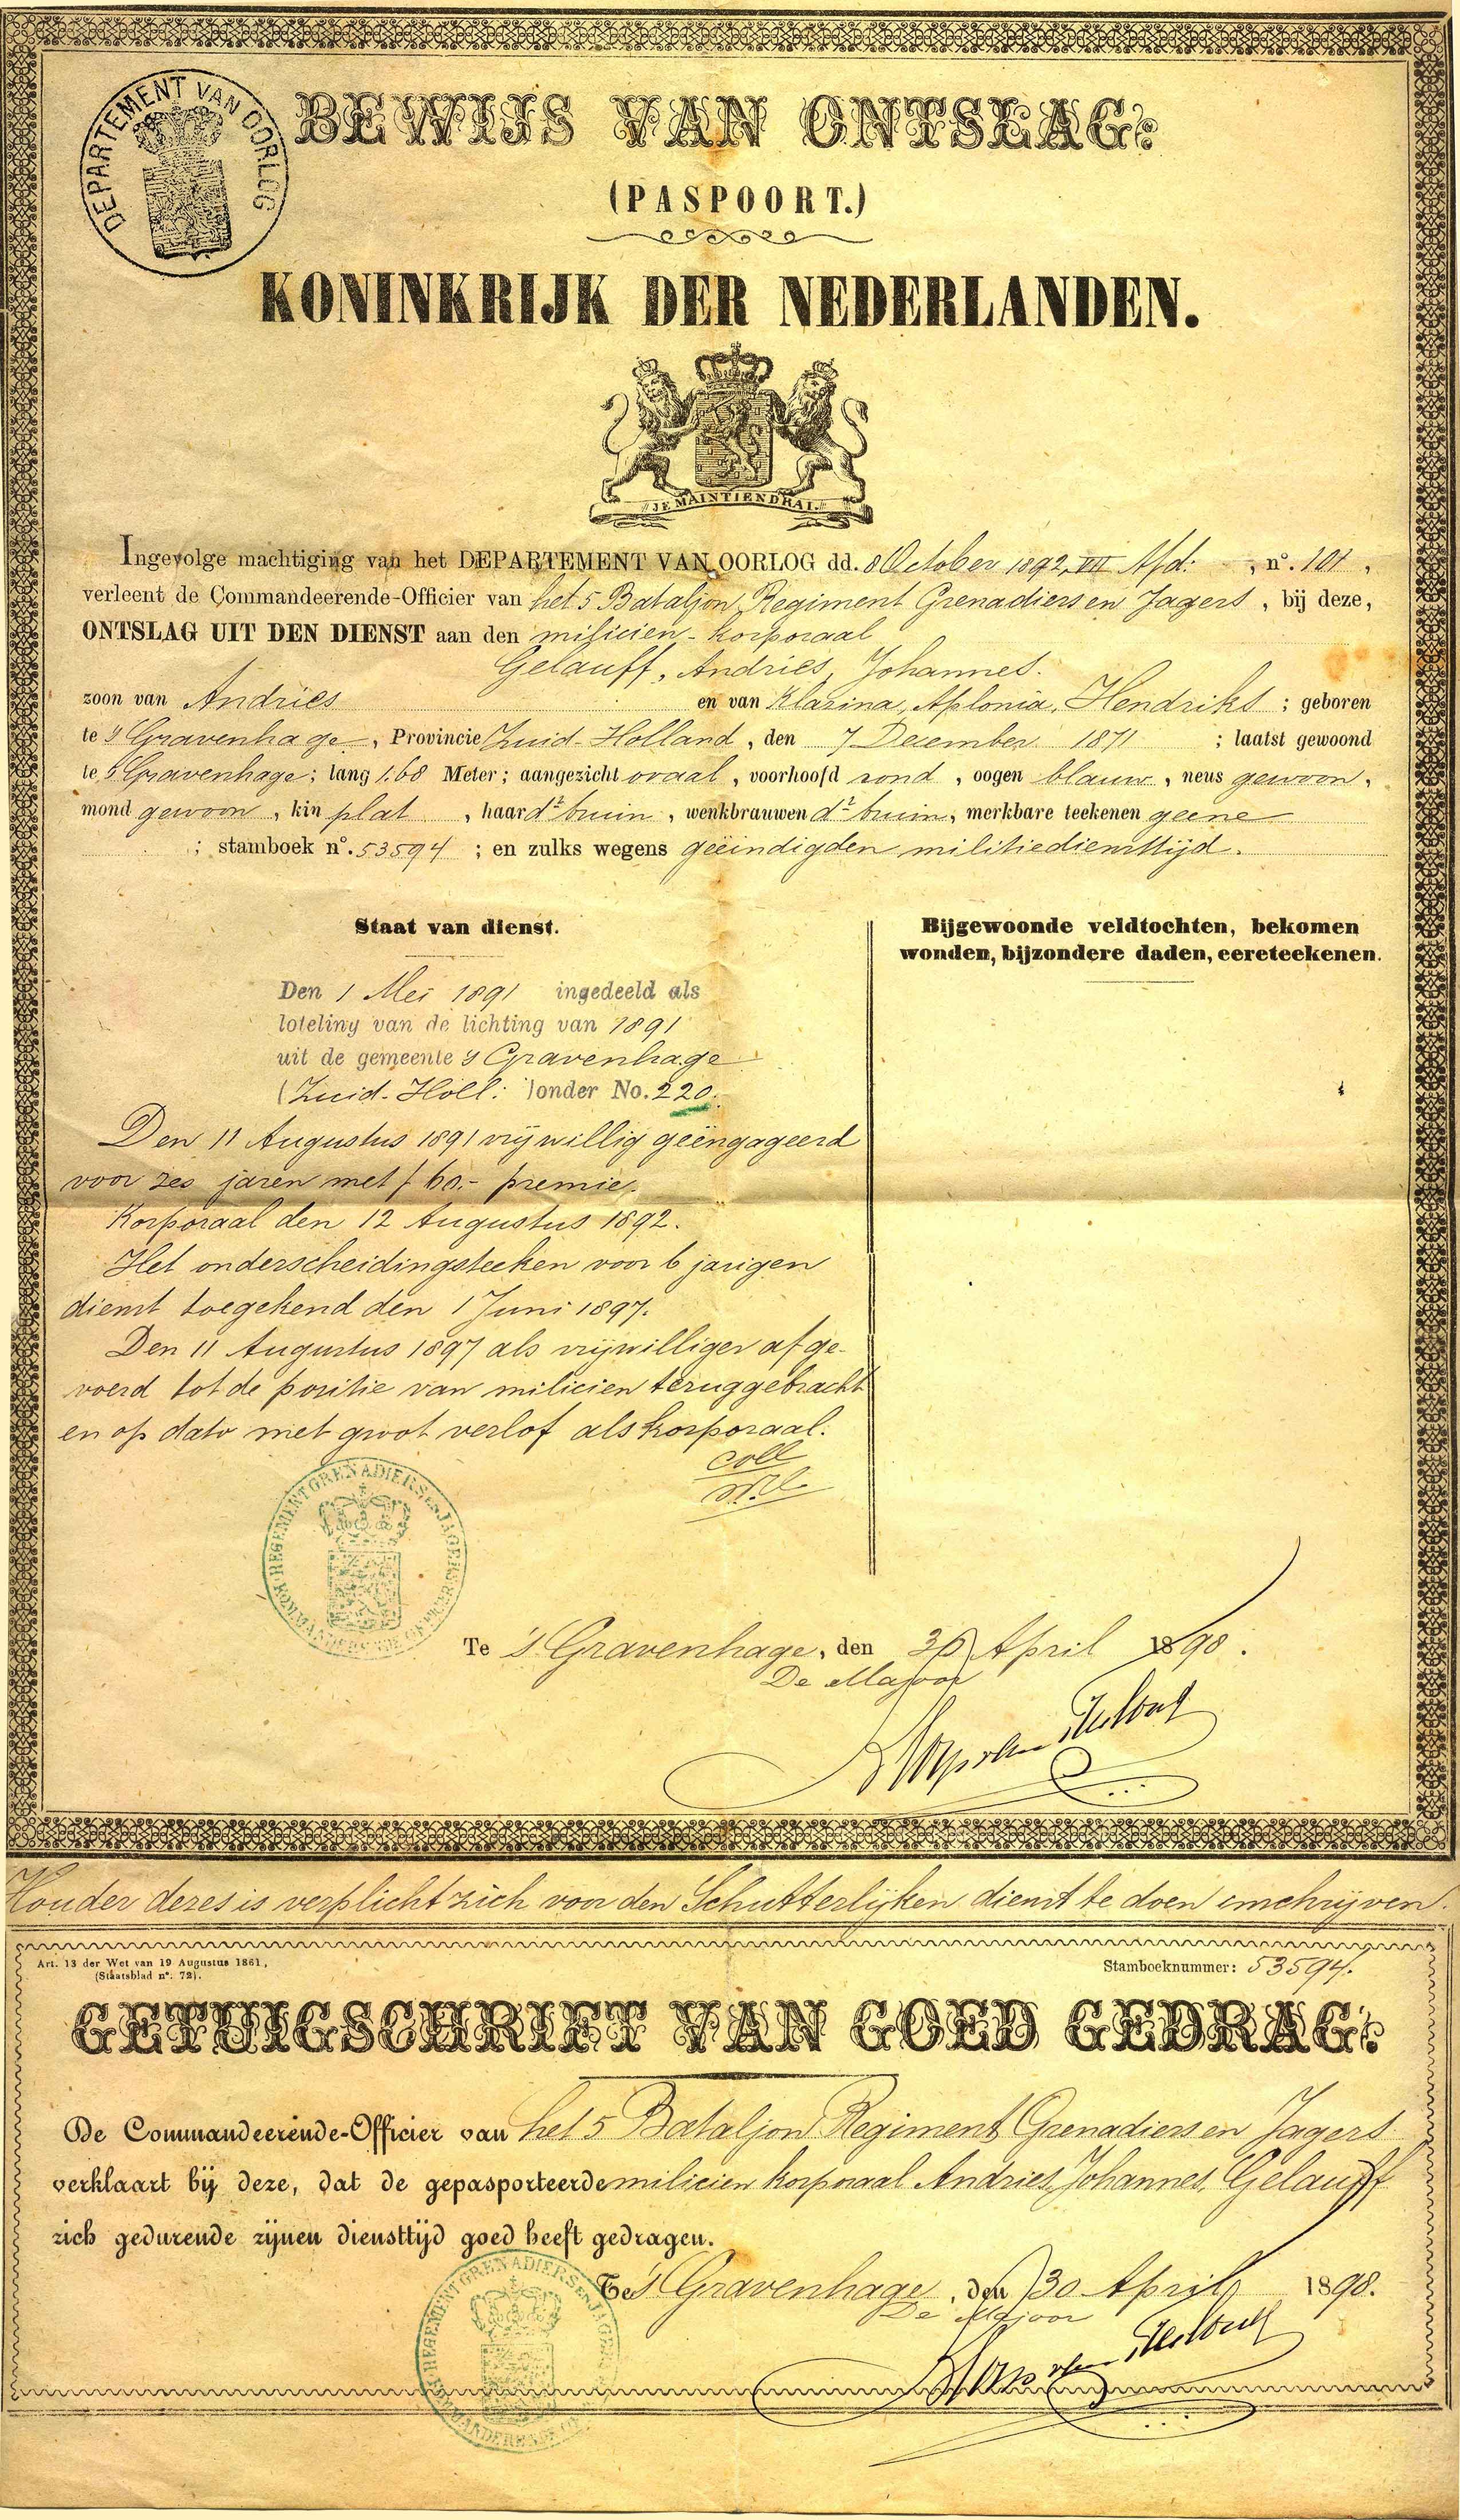 DEPARTEMENT VAN OORLOG
BEWIJS VAN ONTSLAG.
(PASPOORT.)
KONINKRIJK DER NEDERLANDEN.
JE MAINTIENDRAI.
Ingevolge machtiging van het DEPARTEMENT VAN OORLOG dd. 8 October 1892, VII Afd: , nº. 101 ,
verleent de Commandeerende-Officier van het 5 Bataljon Regiment Grenadiers en Jagers , bij deze,
ONTSLAG UIT DEN DIENST aan den milicien - korporaal
Gelauff, Andries, Johannes.
zoon van Andries en van Klasina, Aplonia, Hendriks ; geboren
te 's Gravenhage , Provincie Zuid-Holland , den 7 December 1871 ; laatst gewoond
te 's Gravenhage ; lang 1.68 Meter ; aangezicht ovaal , voorhoofd rond , oogen blauw , neus gewoon ,
mond gewoon , kin plat , haar d² bruin , wenkbrauwen d² bruin , merkbare teekenen geene
; stamboek nº. 53594 ; en zulks wegens geëindigden militiediensttijd.
Staat van dienst.
Bijgewoonde veldtochten, bekomen
wonden, bijzondere daden, eereteekenen.
Den 1 Mei 1891 ingedeeld als
loteling van de lichting van 1891
uit de gemeente 's Gravenhage
(Zuid-Holl: ) onder No. 220.
Den 11 Augustus 1891 vrijwillig geëngageerd
voor zes jaren met ƒ 60.- premie.
Korporaal den 12 Augustus 1892.
Het onderscheidingsteeken voor 6 jarigen
dienst toegekend den 1 Juni 1897.
Den 11 Augustus 1897 als vrijwilliger afge-
voerd tot de positie van milicien teruggebracht
en op dato met groot verlof als korporaal.
Coll
REGEMENT GRENADIERS EN JAGERS
Te 's Gravenhage, den 30 April 1898.
De Majoor
Houder dezes is verplicht zich voor den Schutterlijken dienst te doen inschrijven.
Art. 13 der Wet van 19 Augustus 1861,
(Staatsblad nº. 72).
Stamboeknummer: 53594.
GETUIGSCHRIFT VAN GOED GEDRAG.
De Commandeerende-Officier van het 5 Bataljon Regiment Grenadiers en Jagers
verklaart bij deze, dat de gepasporteerde milicien korporaal Andries, Johannes, Gelauff
zich gedurende zijnen diensttijd goed heeft gedragen.
Te 's Gravenhage , den 30 April 1898.
De Majoor
REGEMENT GRENADIERS EN JAGERS